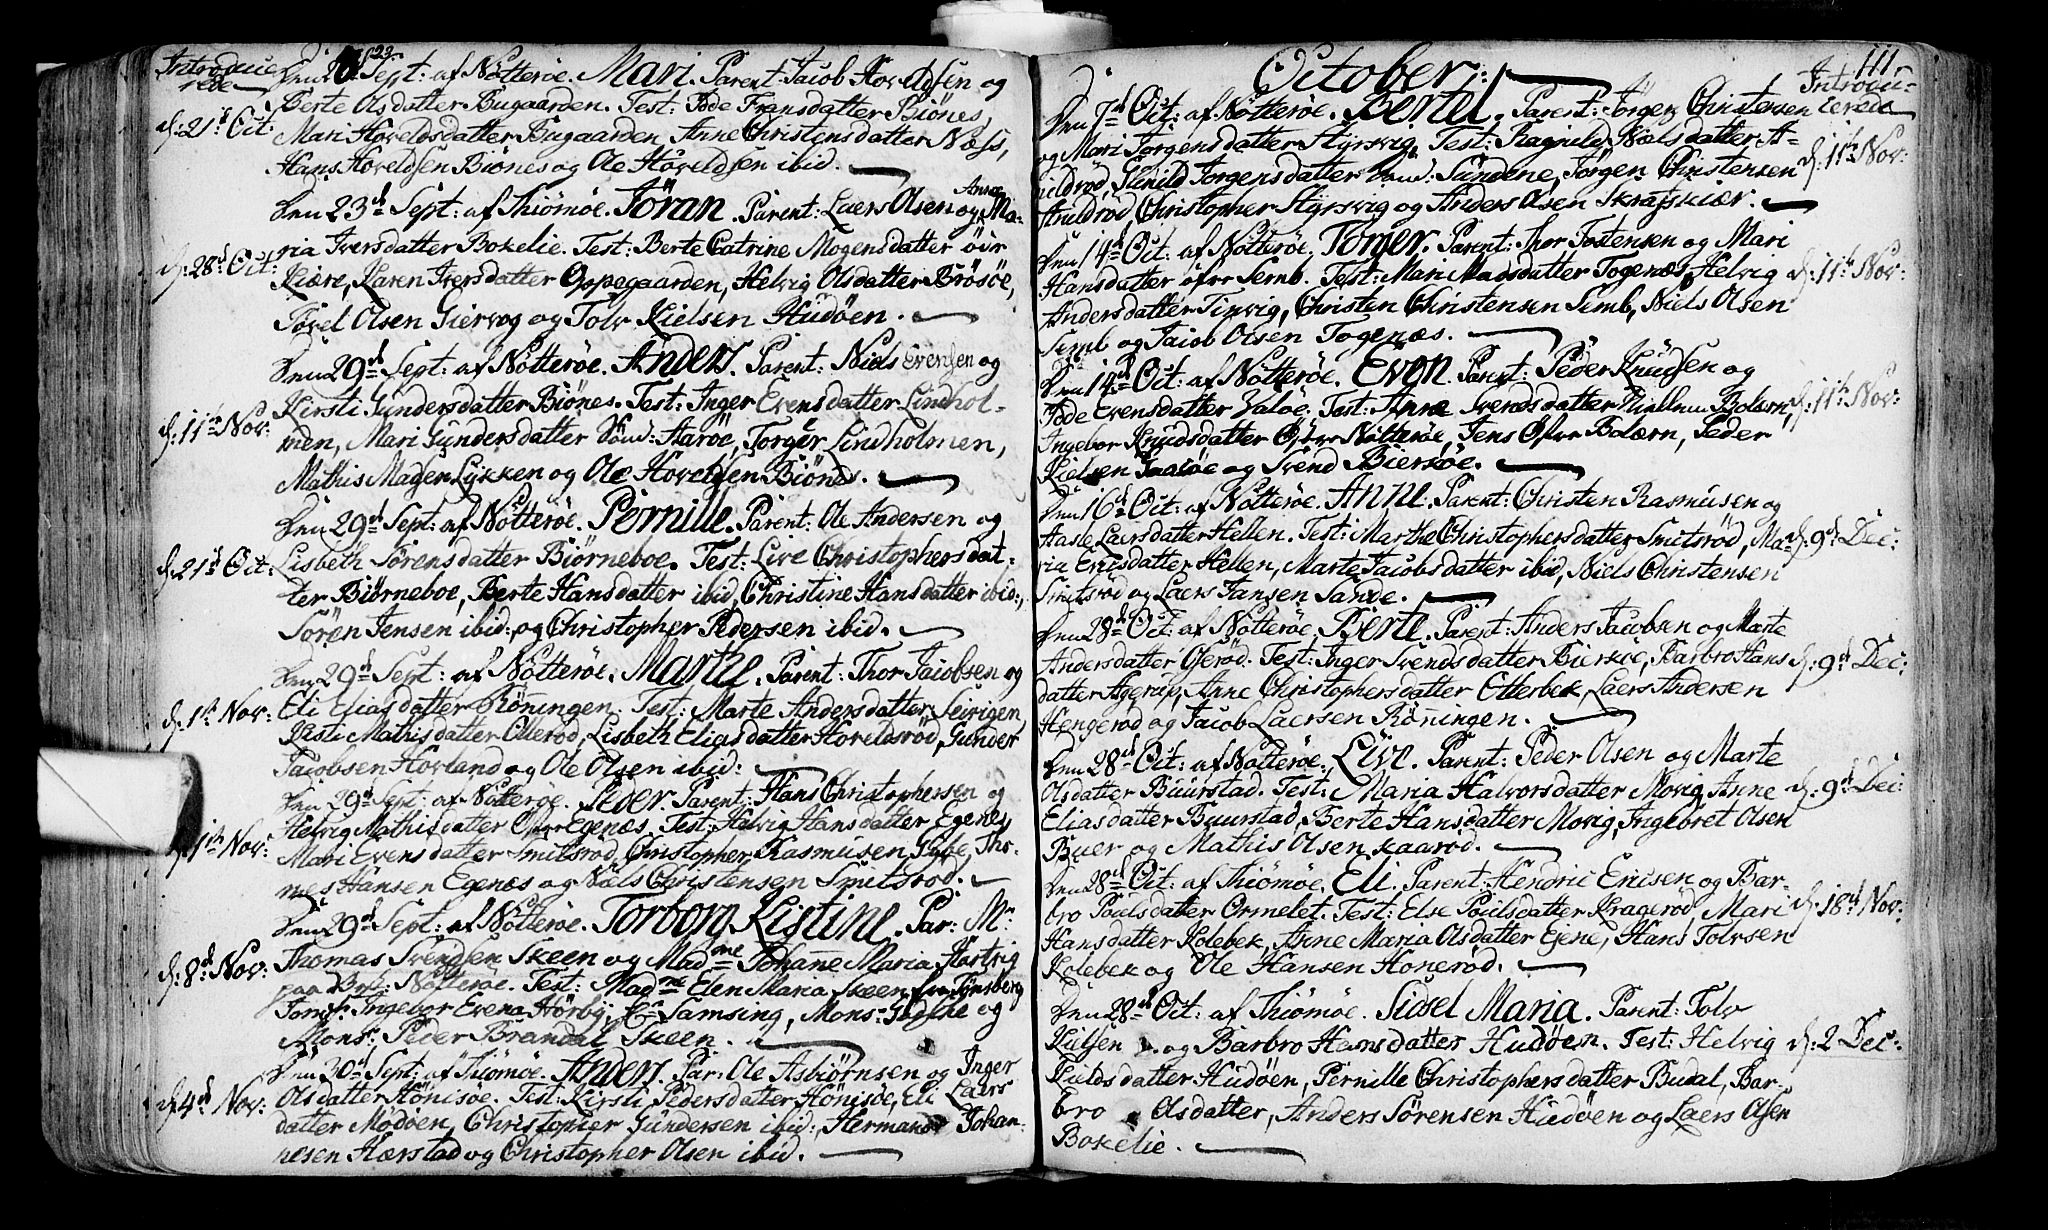 Introduce
rede
Den 23 Sept: af Nötteröe. Mari. Parent: Jacob Hoveldsen og
Berte Olsdatter Bugaarden. Test: Tode Fransdatter Biönes,
d: 21de Oct:
Mari Hoveldsdatter Bugaarden Anne Christensdatter Næss,
Hans Hoveldsen Biönes og Ole Hoveldsen ibid.
Den 23d Sept: af Thiömöe. Jöran. Parent: Laers Olsen og Anne Ma-
ria Iversdatter Bokelie. Test: Berte Catrine Mogensdatter över
d: 28d Oct:
Kiære, Karen Iversdatter Oppegaarden, Helvig Olsdatter Brösöe,
Tovel Olsen Giervog og Tolv Kielsen Hudöen.
Den 29d Sept: af Nötteröe. Anders. Parent: Niels Evensen og
Kirsti Gundersdatter Biönes. Test: Inger Evensdatter Lindhol-
d: 11te Nov:
men, Mari Gundersdatter Sönd: Aaröe, Torger Lindholmen,
Mathis Lykken og Ole Hoveldsen Biönes.
Den 29d Sept: af Nötteröe. Pernille. Parent: Ole Andersen og
d: 21d Oct:
Lisbeth Sörensdatter Biörneboe. Test: Live Christophersdat-
ter Biörneboe, Berte Hansdatter ibid, Christine Hansdatter ibid:,
Sören Jensen ibid: og Christopher Pedersen ibid.
Den 29d Sept: af Nötteröe. Marte. Parent: Thor Jacobsen og
d: 1te Nov:
Eli Eliasdatter Röningen. Test: Marte Andersdatter Leirigen,
Kisti Mathisdatter Ollerod, Lisbeth Eliasdatter Horeldsröd, Gunder
Jacobsen Hovland og Ole Olsen ibid:
Den 29d Sept: af Nötteröe. Peder. Parent: Hans Christophersen og
Helvig Mathisdatter Öfvr Egenæs. Test: Helvig Hansdatter Egenes,
1te Nov:
Mari Evensdatter Smitsröd, Christopher Rasmusen, Tho-
mes Hansen Egenæs og Niels Christensen Smitsröd.
Den 29d Sept: af Nötteröe. Torborg Kistine. Par: Mr
d: 8d Nov:
Thomas Svendsen Skeen og Madme Johane Maria Hartvig
paa Nötteröe. Test: Madme Elen Maria Skeen fra Tönsberg
Jomfr Ingebor Evena Hörbÿe, Hr Samsing, Mons: og
Mons: Peder Brandal Skeen.
Den 30d Sept: af Thiömöe. Anders. Par: Ole Asbiörnsen og Inger
d: 4d Nov:
Olsdatter Hönisöe. Test: Kirsti Pedersdatter Hönisöe, Eli Laers
datter Mödöen, Christopher Gundersen ibid:, Hermand Johan-
nesen Hærstad og Christopher Olsen ibid.
111.
October:
Introdu-
cerede
Den 7d Oct: af Nötteröe. Bertel. Parent: Jörgen Christensen
og Mari Jörgensdatter Hyrsvig. Test: Ragnild Nielsdatter A-
d: 11te Nov:
uldröd, Gunild Jorgensdatter Sundene, Jörgen Christensen
Auldröd Christopher Hyrsvig og Anders Olsen Skrafskiær.
Den 14d Oct: af Nötteröe. Torger. Parent: Thor Tostensen og Mari
Hansdatter öfvr Semb. Test: Mari Madsdatter Togenæs, Helvig
d: 11te Nov:
Andersdatter Tinvig, Christen Christensen Semb, Niels Olsen
Semb og Jacob Olsen Togenæs.
Den 14d Oct: af Nötteröe. Even. Parent: Peder Knudsen og
Tode Evensdatter Valöe. Test: Anne Svendsdatter Mellum Bolæren,
d: 11te Nov:
Ingebor Knudsdatter Nötteröe, Jens Öfvr Bolærn, Peder
Kielsen og Svend Bierköe.
Den 16d Oct: af Nötteröe. Anne. Parent: Christen Rasmusen og
Aasle Laersdatter Hellen. Test: Marthe Christophersdatter Smitsröd, Ma-
d: 9d Dec:
ria Ericsdatter Hellen, Marte Jacobsdatter ibid, Niels Christensen
Smitsröd og Laers Hansen Sande.
Den 28d Oct: af Nötteröe. Berte. Parent: Anders Jacobsen og Marte
Andersdatter Oseröd. Test: Inger Svendsdatter Bierköe, Barbro Hans
d: 9d Dec:
datter Agerup, Anne Christophersdatter Etterbek, Laers Andersen
Hengeröd og Jacob Laersen Röningen.
Den 28d Oct: af Nötteröe. Live. Parent: Peder Olsen og Marte
Olsdatter Buurstad. Test: Maria Halvorsdatter Movig, Anne
d: 9d Dec:
Eliasdatter Buurstad, Berte Hansdatter Movig, Ingebret Olsen
Buer og Mathis Olsen Kaaröd.
Den 28d Oct: af Thiömöe. Eli. Parent: Hendric Ericsen og Bar-
bro Poulsdatter Ormelet. Test: Else Poulsdatter Krageröd, Mari
d: 18d Nov:
Hansdatter Kolebek, Anne Maria Olsdatter Eiene, Hans Tolvsen
Kolebek og Ole Hansen Honeröd.
Den 28d Oct: af Thiömöe. Sidsel Maria. Parent: Tolv
Kielsen og Barbro Hansdatter Hudöen. Test: Helvig
d: 2 Dec:
Kieldsdatter Hudöen, Pernille Christophersdatter Budal, Bar-
bro Olsdatter, Anders Sörensen Hudöen og Laers Olsen
Bokelie.